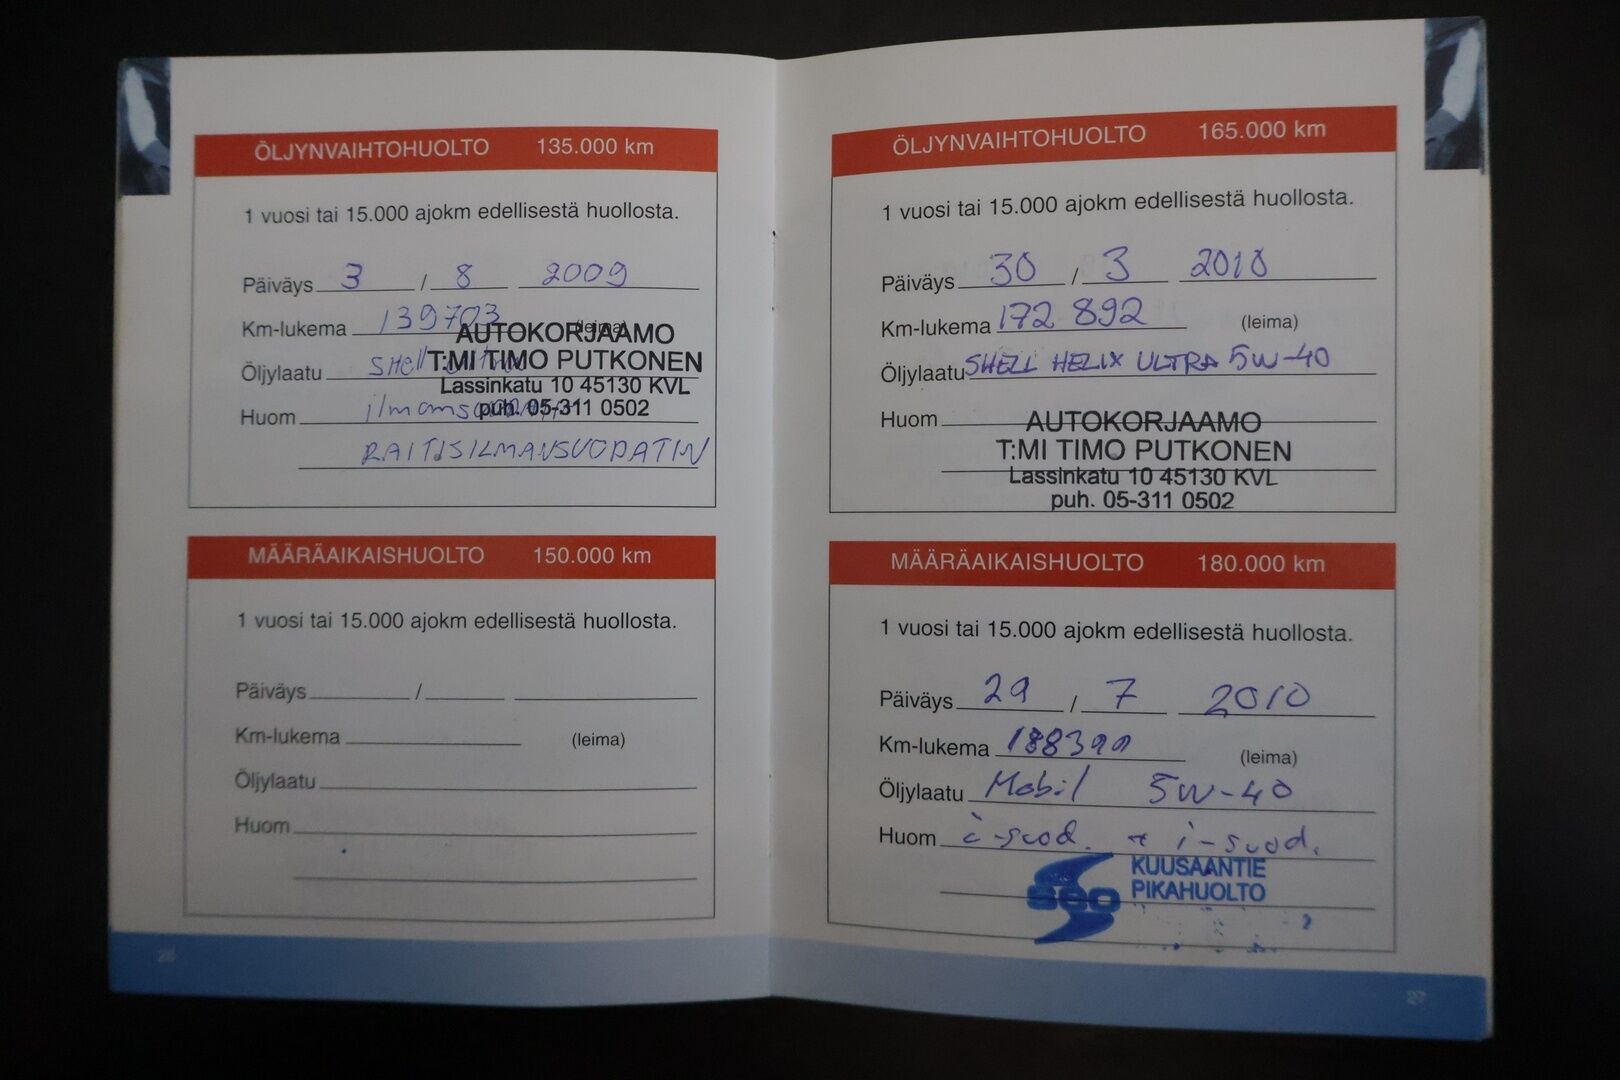 ÖLJYNVAIHTOHUOLTO 135.000 km
1 vuosi tai 15.000 ajokm edellisestä huollosta.
Päiväys 3 / 8 2009
Km-lukema 139703 (leima)
AUTOKORJAAMO
Öljylaatu Shell
T:MI TIMO PUTKONEN
Lassinkatu 10 45130 KVL
Huom
puh. 05-311 0502
RAITISILMANSUODATIN
MÄÄRÄAIKAISHUOLTO 150.000 km
1 vuosi tai 15.000 ajokm edellisestä huollosta.
Päiväys /
Km-lukema (leima)
Öljylaatu
Huom
26
ÖLJYNVAIHTOHUOLTO 165.000 km
1 vuosi tai 15.000 ajokm edellisestä huollosta.
Päiväys 30 / 3 2010
Km-lukema 172 892 (leima)
Öljylaatu SHELL HELIX ULTRA 5W-40
Huom
AUTOKORJAAMO
T:MI TIMO PUTKONEN
Lassinkatu 10 45130 KVL
puh. 05-311 0502
MÄÄRÄAIKAISHUOLTO 180.000 km
1 vuosi tai 15.000 ajokm edellisestä huollosta.
Päiväys 29 / 7 2010
Km-lukema 188399 (leima)
Öljylaatu Mobil 5W-40
Huom ö-suod. + i-suod.
KUUSAANTIE
SEO PIKAHUOLTO
27